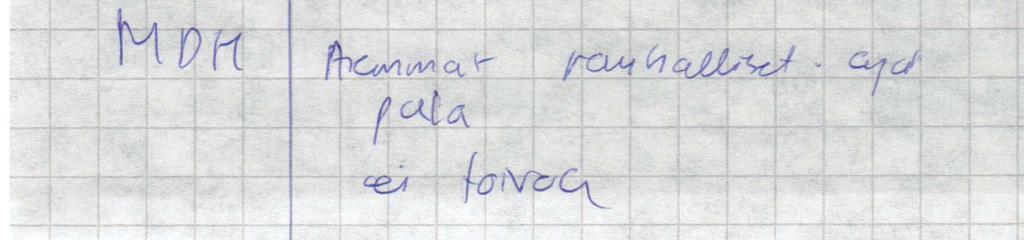 MDH Aremmat rauhalliset.
pala
ei toivoa